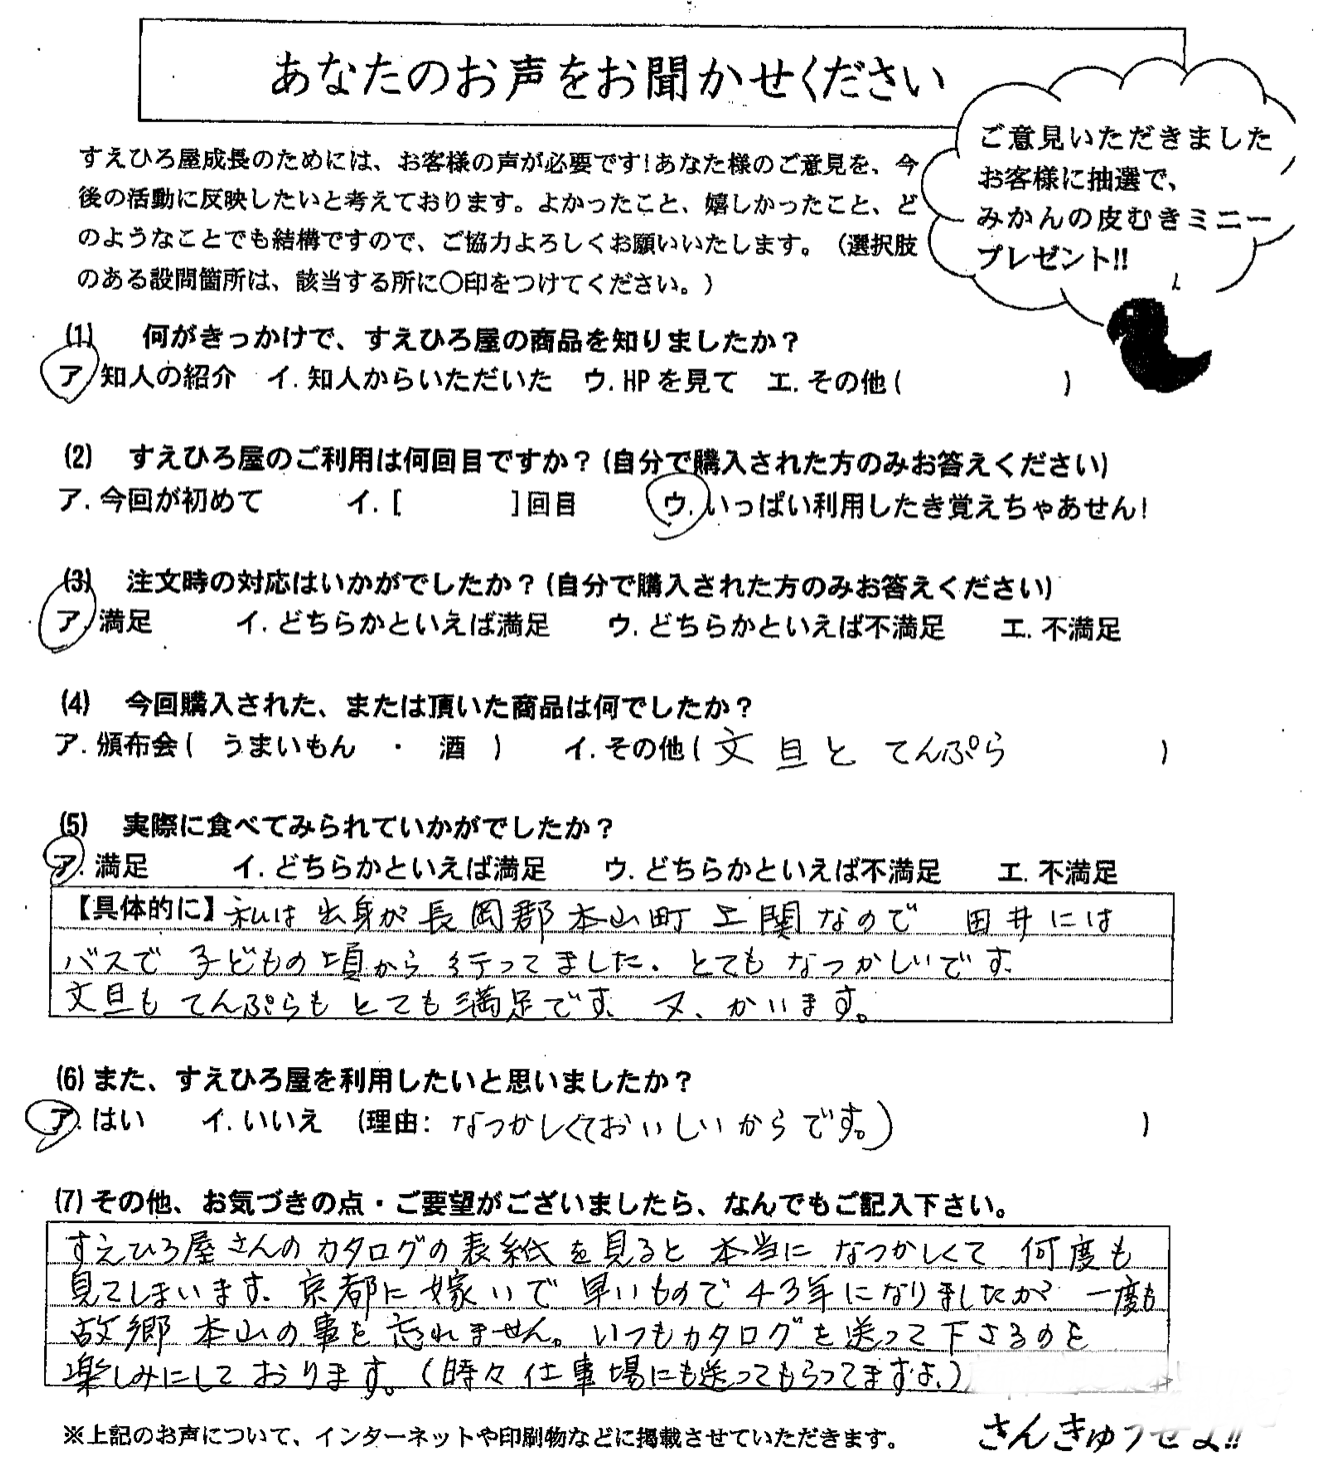 あなたのお声をお聞かせください
ご意見いただきました
お客様に抽選で、
みかんの皮むきミニー
プレゼント!!
すえひろ屋成長のためには、お客様の声が必要です!あなた様のご意見を、今
後の活動に反映したいと考えております。よかったこと、嬉しかったこと、ど
のようなことでも結構ですので、ご協力よろしくお願いいたします。（選択肢
のある設問箇所は、該当する所に〇印をつけてください。）
(1)　何がきっかけで、すえひろ屋の商品を知りましたか？
ア.知人の紹介　イ.知人からいただいた　ウ.HPを見て　エ.その他(　　　　　　)
(2)　すえひろ屋のご利用は何回目ですか？(自分で購入された方のみお答えください)
ア.今回が初めて　　　イ.[　　　　]回目　　　ウ.いっぱい利用したき覚えちゃあせん!
(3)　注文時の対応はいかがでしたか？(自分で購入された方のみお答えください)
ア.満足　　　イ.どちらかといえば満足　　ウ.どちらかといえば不満足　　エ.不満足
(4)　今回購入された、または頂いた商品は何でしたか？
ア.頒布会(　うまいもん　・　酒　)　　イ.その他(文旦と てんぷら　　　　　)
(5)　実際に食べてみられていかがでしたか？
ア.満足　　　イ.どちらかといえば満足　　ウ.どちらかといえば不満足　　エ.不満足
【具体的に】私は出身が長岡郡本山町上関なので　田井には
バスで子どもの頃から行ってました。とてもなつかしいです。
文旦もてんぷらもとても満足です。又、かいます。
(6)また、すえひろ屋を利用したいと思いましたか？
ア.はい　　イ.いいえ　(理由：なつかしくておいしいからです。)　　　　　　)
(7)その他、お気づきの点・ご要望がございましたら、なんでもご記入下さい。
すえひろ屋さんのカタログの表紙を見ると本当になつかしくて何度も
見てしまいます。京都に嫁いで早いもので43年になりましたが一度も
故郷本山の事を忘れません。いつもカタログを送って下さるのを
楽しみにしております。(時々仕事場にも送ってもらってますよ。)
※上記のお声について、インターネットや印刷物などに掲載させていただきます。
さんきゅうせよ!!